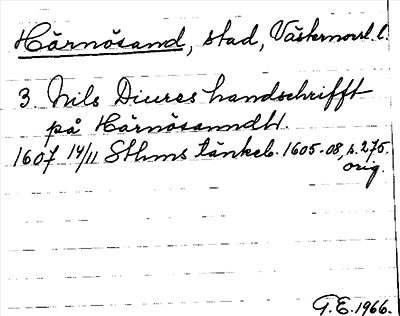 Härnösand, stad, Västernorrl. l.
3 Nils Diures handschrifft
på Härnösanndh.
1607 14/11 Sthms tänkeb. 1605-08, s. 275.
orig.
G.E. 1966.